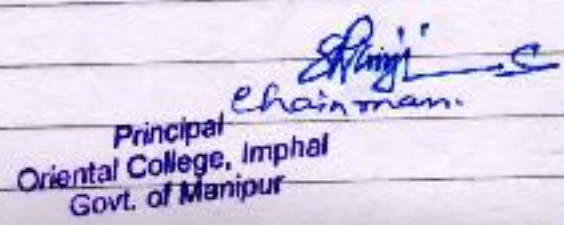 Chairman.
Principal
Oriental College, Imphal
Govt. of Manipur